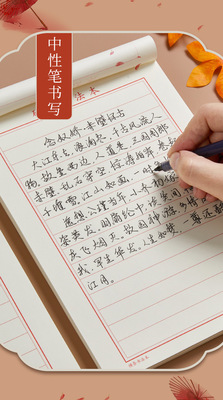 中性笔书写
法本
念奴娇·赤壁怀古
大江东去,浪淘尽,千古风流人
物,故垒西边,人道是,三国周郎
赤壁,乱石穿空,惊涛拍岸,卷起
千堆雪,江山如画,一时
遥想,公瑾当年,小乔初
姿英发,羽扇纶巾,谈笑间
灰飞烟灭,故国神游,多情
我,早生华发,人生如梦,尊还酹
江月。